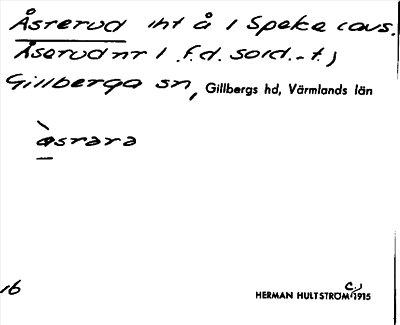 Åsrerud iht å i Speke (avs.
Åserud nr 1 f.d. sold.-t.)
Gillberga sn, Gillbergs hd, Värmlands län
àsrara
16
HERMAN HULTSTRÖM C:) 1915